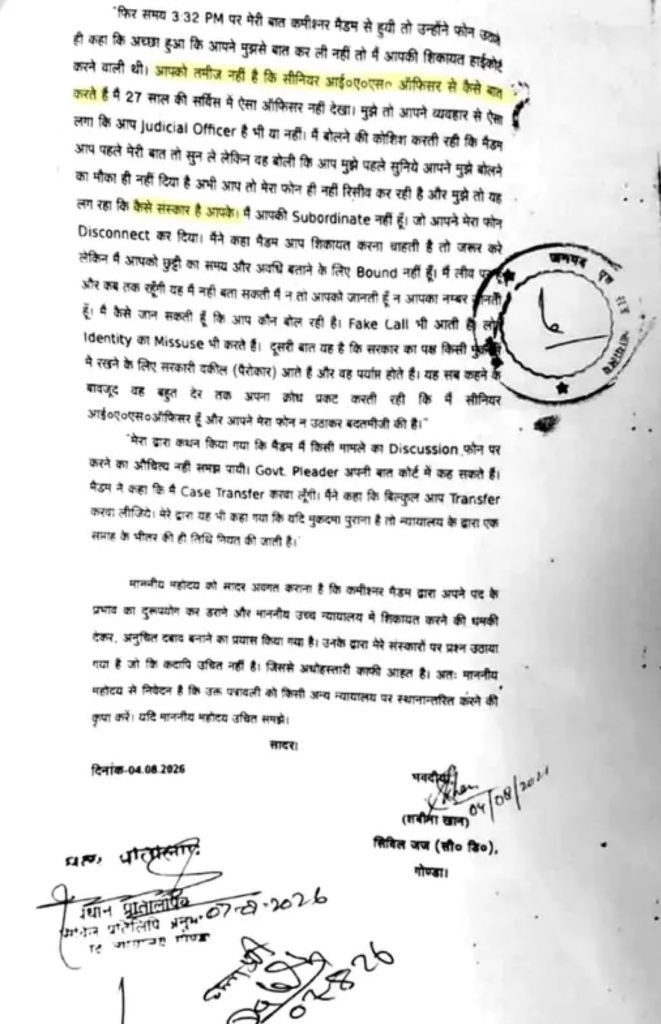 "फिर समय 3:32 PM पर मेरी बात कमीश्नर मैडम से हुयी तो उन्होंने फोन उठाते
ही कहा कि अच्छा हुआ कि आपने मुझसे बात कर ली नहीं तो मैं आपकी शिकायत हाईकोर्ट
करने वाली थी। आपको तमीज नहीं है कि सीनियर आई०ए०एस० ऑफिसर से कैसे बात
करते हैं मैं 27 साल की सर्विस में ऐसा ऑफिसर नही देखा। मुझे तो आपने व्यवहार से ऐसा
लगा कि आप Judicial Officer है भी या नहीं। मैं बोलने की कोशिश करती रही कि मैडम
आप पहले मेरी बात तो सुन ले लेकिन वह बोली कि आप मुझे पहले सुनिये आपने मुझे बोलने
का मौका ही नहीं दिया है अभी आप तो मेरा फोन ही नहीं रिसीव कर रही है और मुझे तो यह
लग रहा कि कैसे संस्कार है आपके। मैं आपकी Subordinate नहीं हूँ। जो आपने मेरा फोन
Disconnect कर दिया। मैंने कहा मैडम आप शिकायत करना चाहती है तो जरूर करे
लेकिन मैं आपको छुट्टी का समय और अवधि बताने के लिए Bound नहीं हूँ। मैं लीव पर हूँ
और कब तक रहूँगी यह मैं नही बता सकती मैं न तो आपको जानती हूँ न आपका नम्बर जानती
हूँ। मैं कैसे जान सकती हूँ कि आप कौन बोल रही है। Fake Call भी आती है लोग
Identity का Missuse भी करते हैं। दूसरी बात यह है कि सरकार का पक्ष किसी मुकदमे
मे रखने के लिए सरकारी वकील (पैरोकार) आते है और वह पर्याप्त होते है। यह सब कहने के
बावजूद वह बहुत देर तक अपना क्रोध प्रकट करती रही कि मैं सीनियर
आई०ए०एस०ऑफिसर हूँ और आपने मेरा फोन न उठाकर बदतमीजी की है।"
"मेरा द्वारा कथन किया गया कि मैडम मैं किसी मामले का Discussion फोन पर
करने का औचित्य नही समझ पायी। Govt. Pleader अपनी बात कोर्ट में कह सकते हैं।
मैडम ने कहा कि मैं Case Transfer करवा लूँगी। मैंने कहा कि बिल्कुल आप Transfer
करवा लीजिये। मेरे द्वारा यह भी कहा गया कि यदि मुकदमा पुराना है तो न्यायालय के द्वारा एक
सप्ताह के भीतर की ही तिथि नियत की जाती है।
माननीय महोदय को सादर अवगत कराना है कि कमीश्नर मैडम द्वारा अपने पद के
प्रभाव का दुरूपयोग कर डराने और माननीय उच्च न्यायालय मे शिकायत करने की धमकी
देकर, अनुचित दबाव बनाने का प्रयास किया गया है। उनके द्वारा मेरे संस्कारों पर प्रश्न उठाया
गया है जो कि कदापि उचित नही है। जिससे अधोहस्तारी काफी आहत है। अतः माननीय
महोदय से निवेदन है कि उक्त पत्रावली को किसी अन्य न्यायालय पर स्थानान्तरित करने की
कृपा करें। यदि माननीय महोदय उचित समझे।
सादर।
दिनांक-04.08.2026
भवदीया
04/08/2026
(शबीना खान)
सिविल जज (सी० डि०),
गोण्डा।
जनपद एवं सत्र न्यायालय
07-8-2026